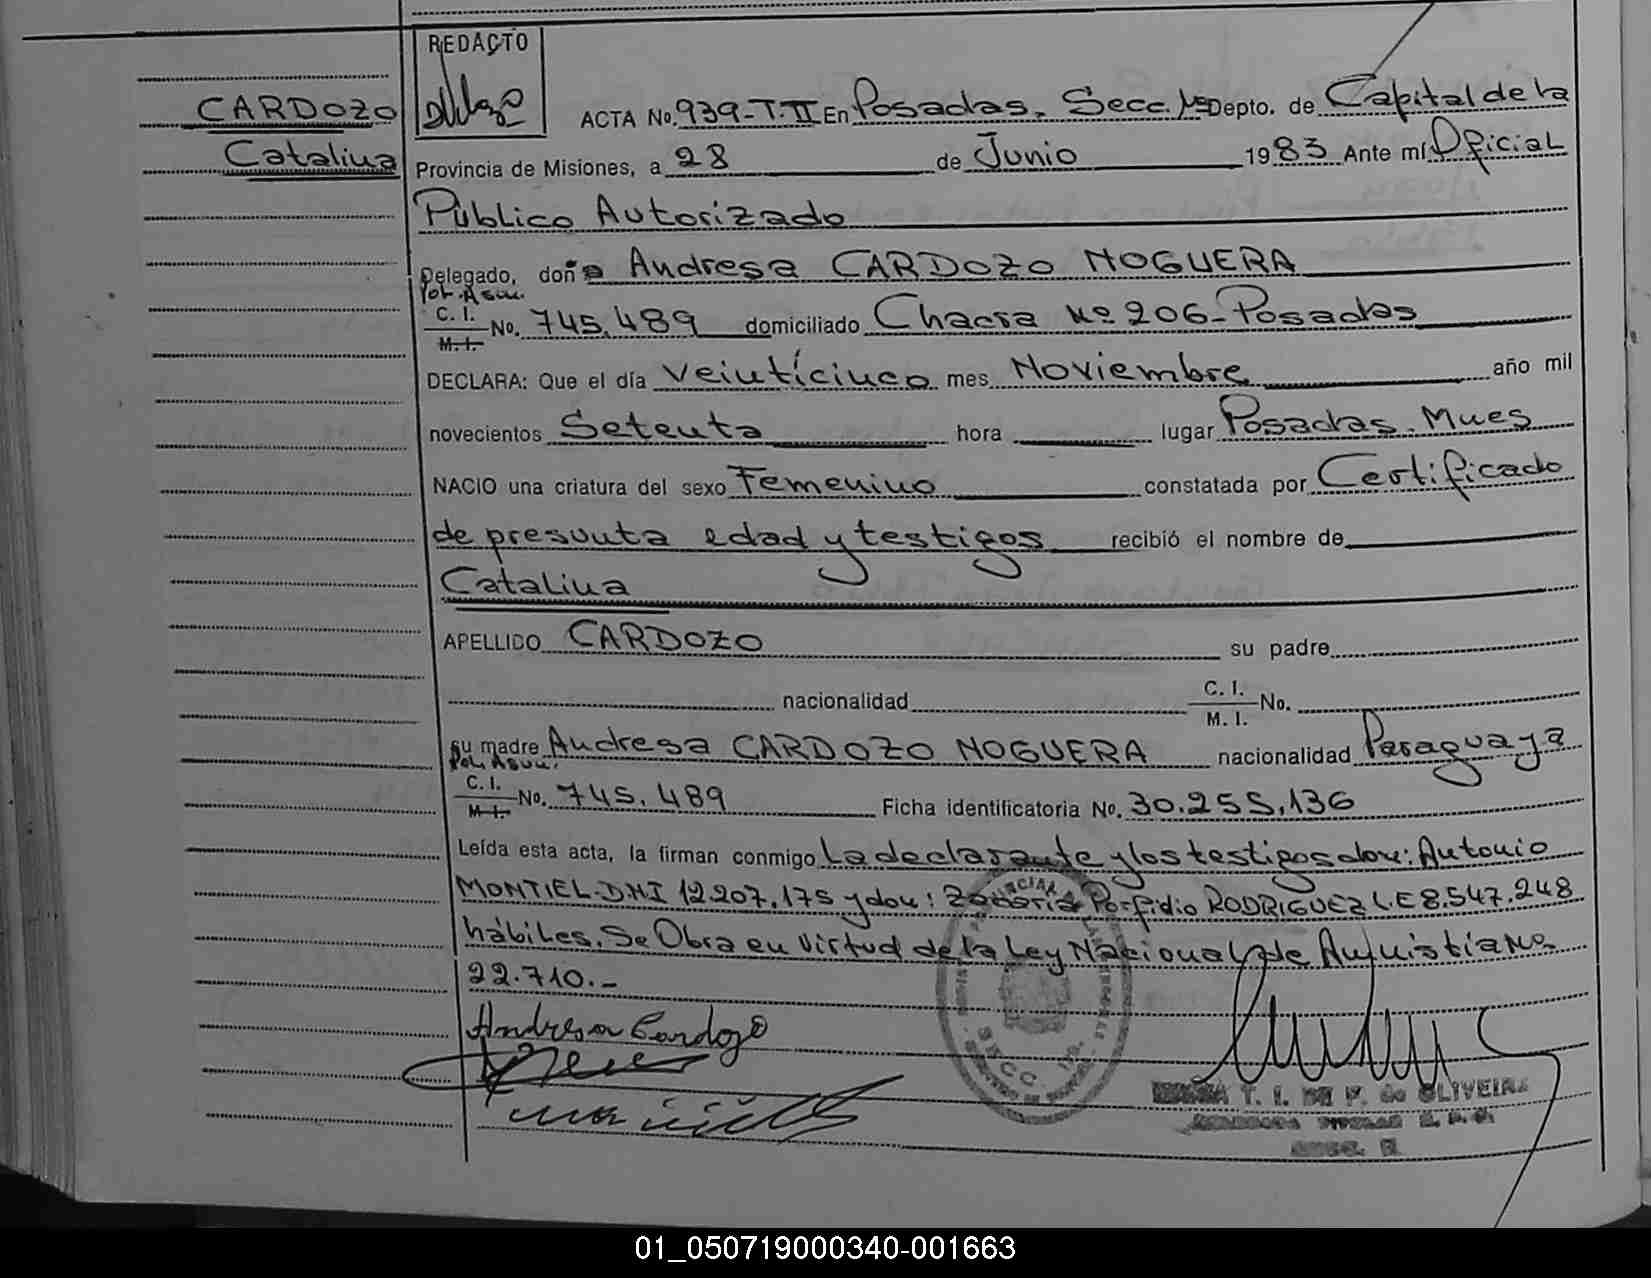 REDACTO
CARDOZO
Catalina
ACTA No. 939-T.II En Posadas, Secc. 1ª Depto. de Capital de la
Provincia de Misiones, a 28 de Junio 1983 Ante mí Oficial
Público Autorizado
Delegado, doña Andresa CARDOZO NOGUERA
Pol. Asun.
C. I.
M. I. No. 745.489 domiciliado Chacra Nº 206-Posadas
DECLARA: Que el día veinticinco mes Noviembre año mil
novecientos Setenta hora lugar Posadas. Mnes
NACIO una criatura del sexo Femenino constatada por Certificado
de presunta edad y testigos recibió el nombre de
Catalina
APELLIDO CARDOZO su padre
nacionalidad C. I.
M. I. No.
su madre Andresa CARDOZO NOGUERA nacionalidad Paraguaya
Pol. Asun.
C. I.
M. I. No. 745.489 Ficha identificatoria No. 30.255.136
Leída esta acta, la firman conmigo La declarante y los testigos don: Antonio
MONTIEL-DNI 12.207.175 y don: Porfidio RODRIGUEZ L.E 8.547.248
hábiles. Se Obra en Virtud de la Ley Nacional de Amnistía No.
22.710.-
Andresa Cardozo
T. I. DE F. de OLIVEIRA
01_050719000340-001663